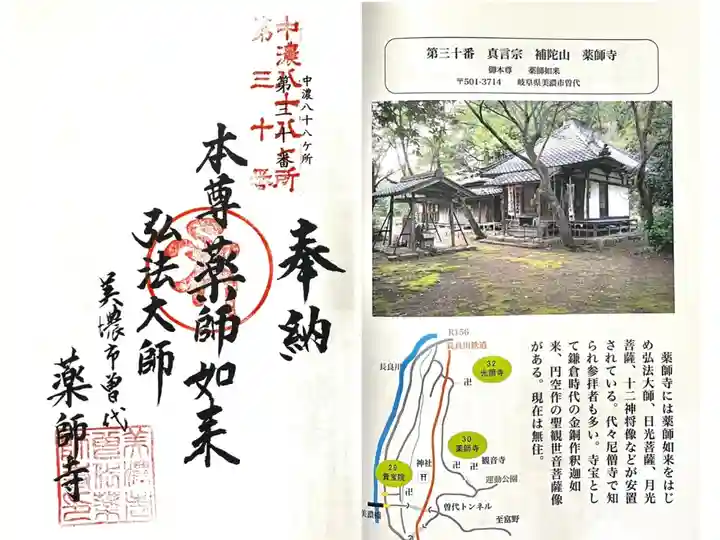 奉納
中濃八十八ヶ所
第三十番
中濃八十八ヶ所
第三十番
本尊薬師如来
弘法大師
美濃市曽代
薬師寺
第三十番 真言宗 補陀山 薬師寺
御本尊 薬師如来
〒501-3714 岐阜県美濃市曽代
薬師寺には薬師如来をはじ
め弘法大師、日光菩薩、月光
菩薩、十二神将像などが安置
されている。代々尼僧寺で知
られ参拝者も多い。寺宝とし
て鎌倉時代の金銅作釈迦如
来、円空作の聖観世音菩薩像
がある。現在は無住。
R156
長良川鉄道
長良川
32
30
薬師寺
観音寺
神社
29
運動公園
曽代トンネル
美濃橋
至富野